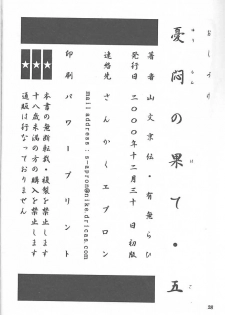 おしまい
憂悶の果て・五
ゆう もん は ご
著者 山文京伝・有無らひ
発行日 二〇〇〇年十二月三十日初版
連絡先 さんかくエプロン
mail address : s-apron@nike.dricas.com
印刷 パワープリント
★本書の無断転載・複製を禁止します
★十八歳未満の方の購入を禁止します
★通販は行なっておりません
38